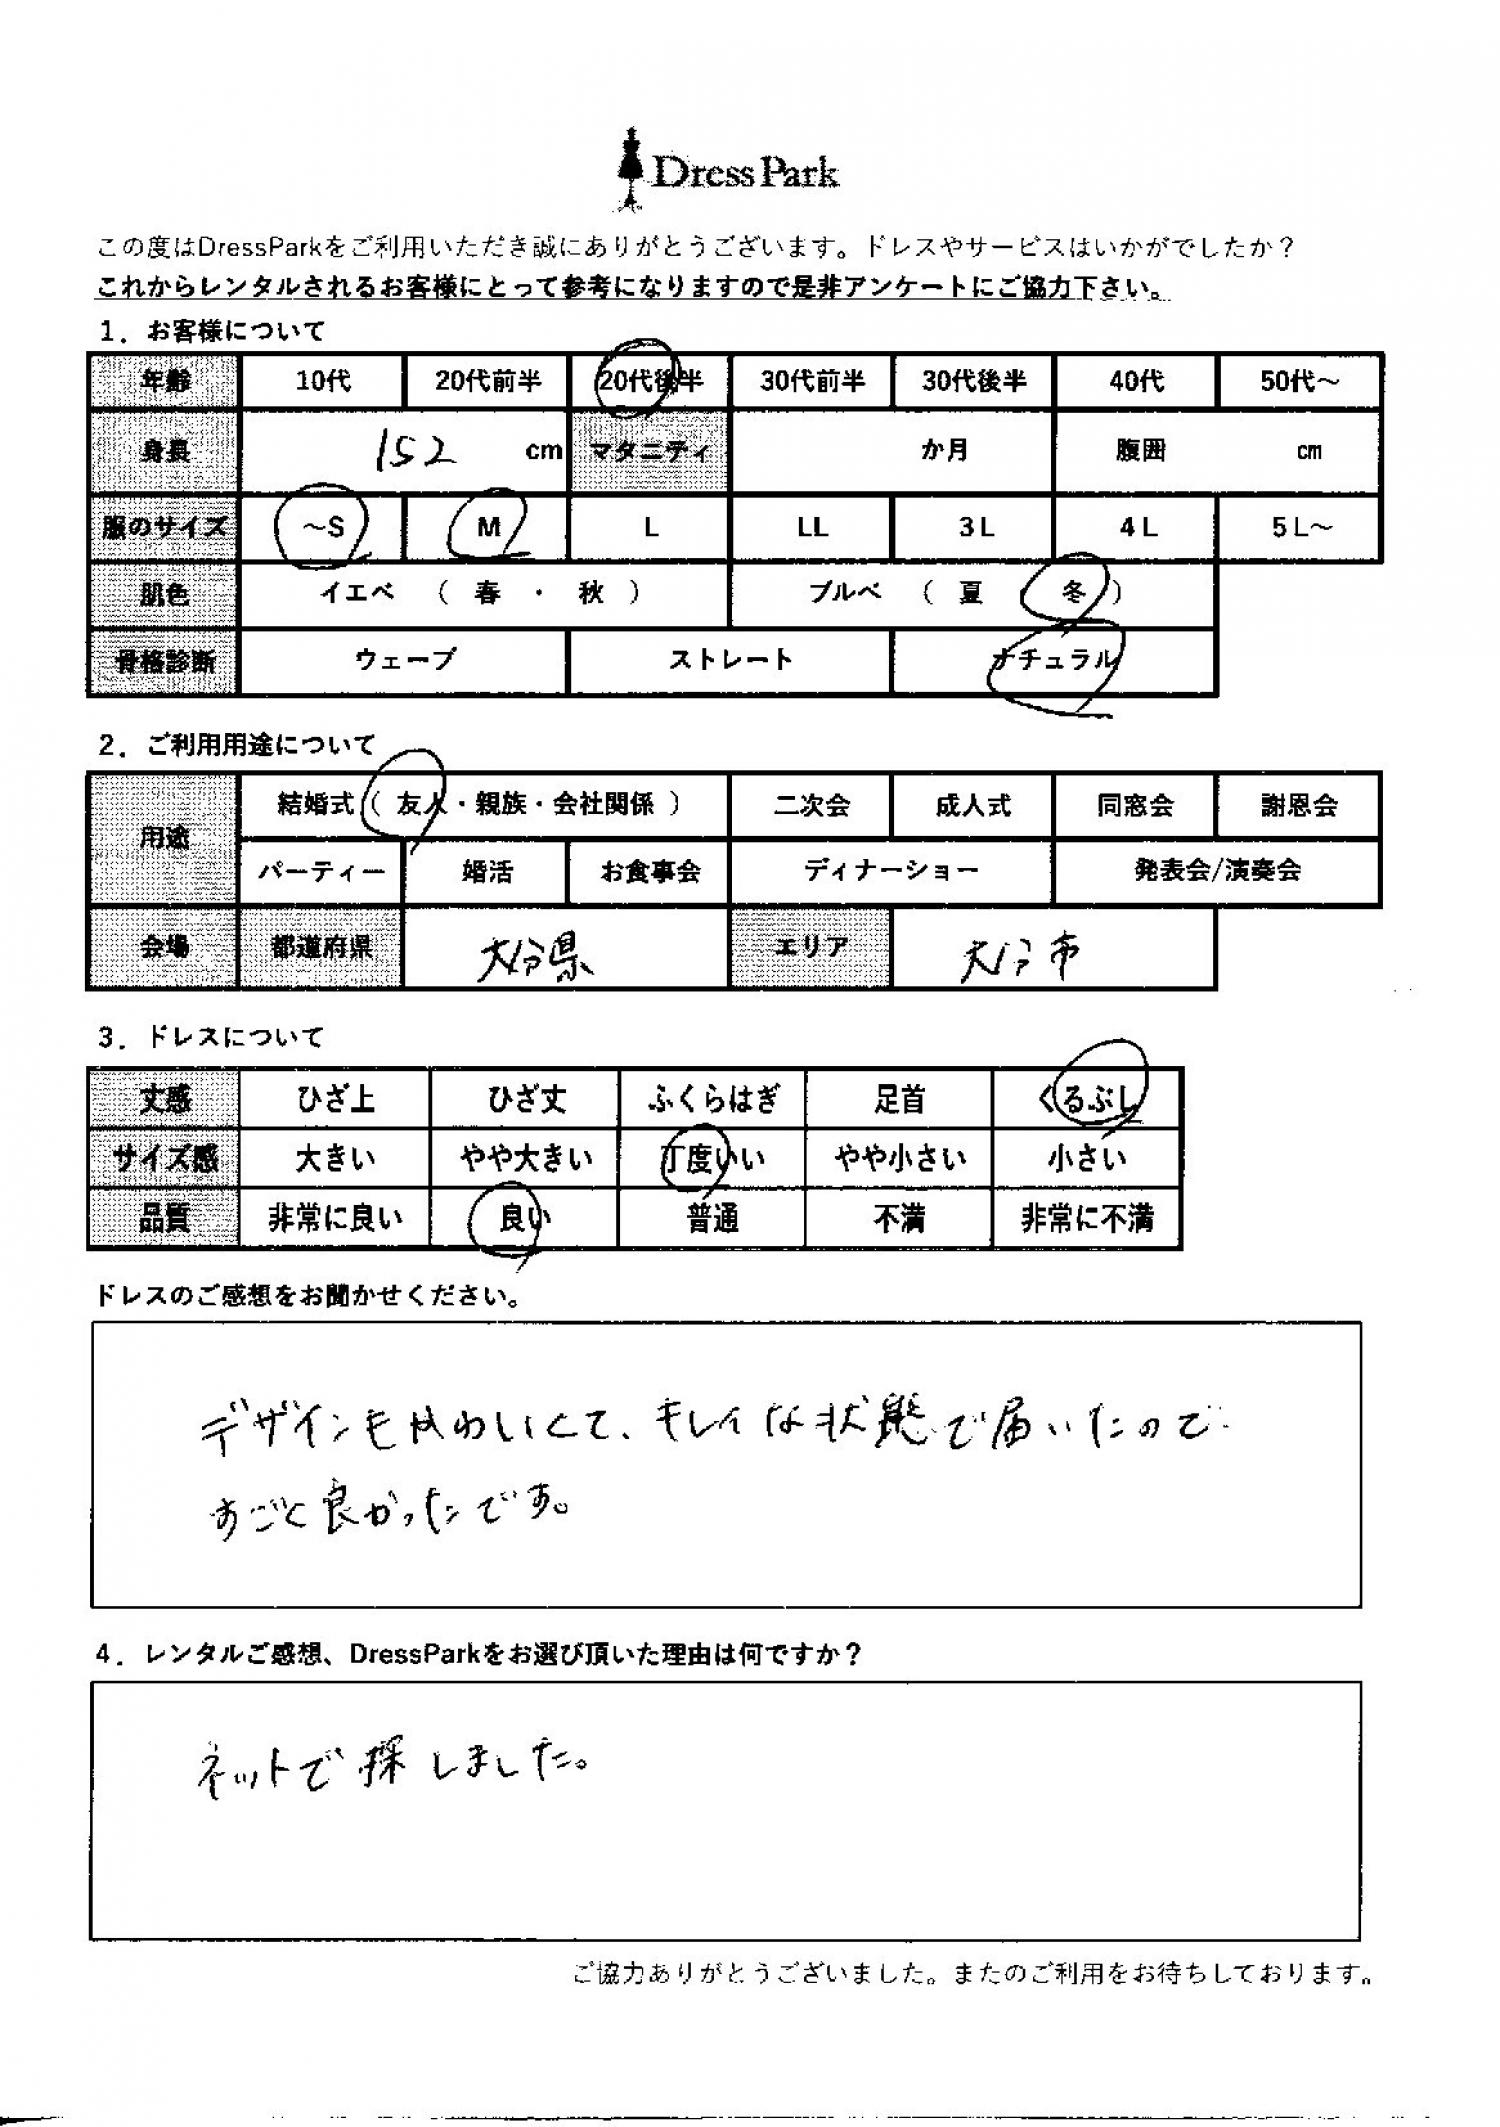 DressPark
この度はDressParkをご利用いただき誠にありがとうございます。ドレスやサービスはいかがでしたか？
これからレンタルされるお客様にとって参考になりますので是非アンケートにご協力下さい。
1．お客様について
年齢 10代 20代前半 20代後半 30代前半 30代後半 40代 50代～
身長 152 cm マタニティ か月 腹囲 cm
服のサイズ ～S M L LL 3L 4L 5L～
肌色 イエベ （ 春 ・ 秋 ） ブルベ （ 夏 冬 ）
骨格診断 ウェーブ ストレート ナチュラル
2．ご利用用途について
用途 結婚式（ 友人・親族・会社関係 ） 二次会 成人式 同窓会 謝恩会
パーティー 婚活 お食事会 ディナーショー 発表会/演奏会
会場 都道府県 大分県 エリア 大分市
3．ドレスについて
丈感 ひざ上 ひざ丈 ふくらはぎ 足首 くるぶし
サイズ感 大きい やや大きい 丁度いい やや小さい 小さい
品質 非常に良い 良い 普通 不満 非常に不満
ドレスのご感想をお聞かせください。
デザインもかわいくて、キレイな状態で届いたので
すごく良かったです。
4．レンタルご感想、DressParkをお選び頂いた理由は何ですか？
ネットで探しました。
ご協力ありがとうございました。またのご利用をお待ちしております。